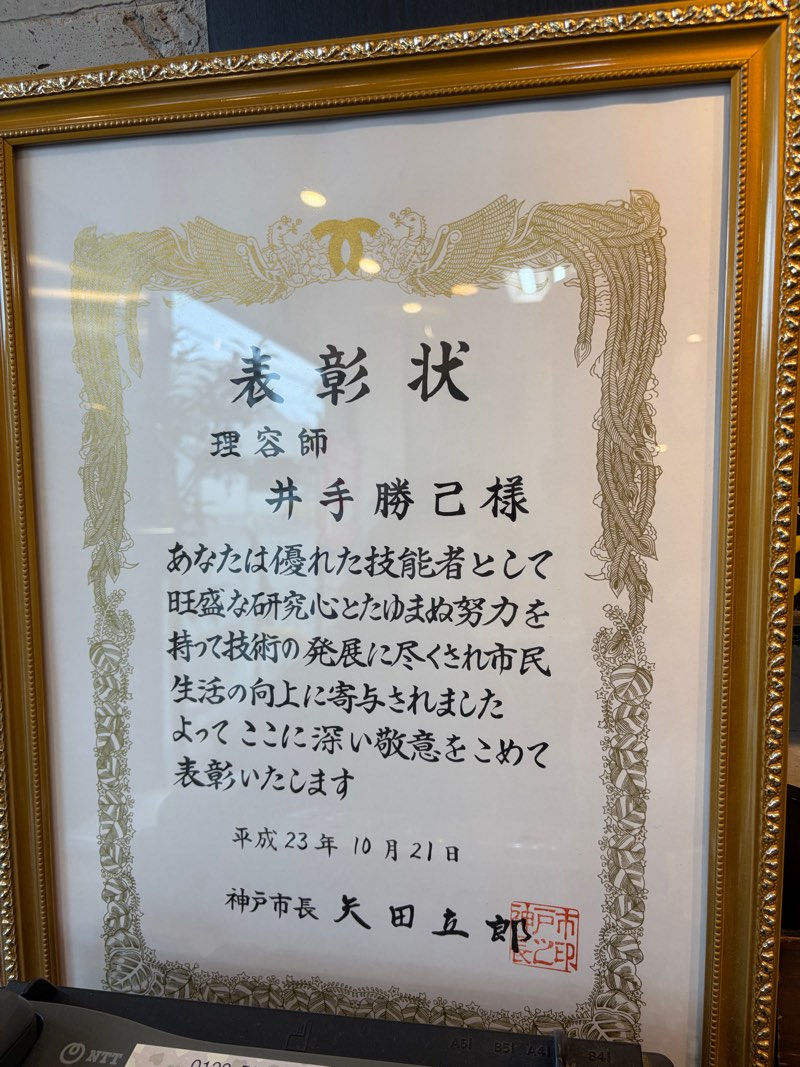 表彰状
理容師
井手勝己様
あなたは優れた技能者として
旺盛な研究心とたゆまぬ努力を
持って技術の発展に尽くされ市民
生活の向上に寄与されました
よってここに深い敬意をこめて
表彰いたします
平成23年10月21日
神戸市長 矢田立郎
神戸市長之印
NTT
A5 B5 A4 B4